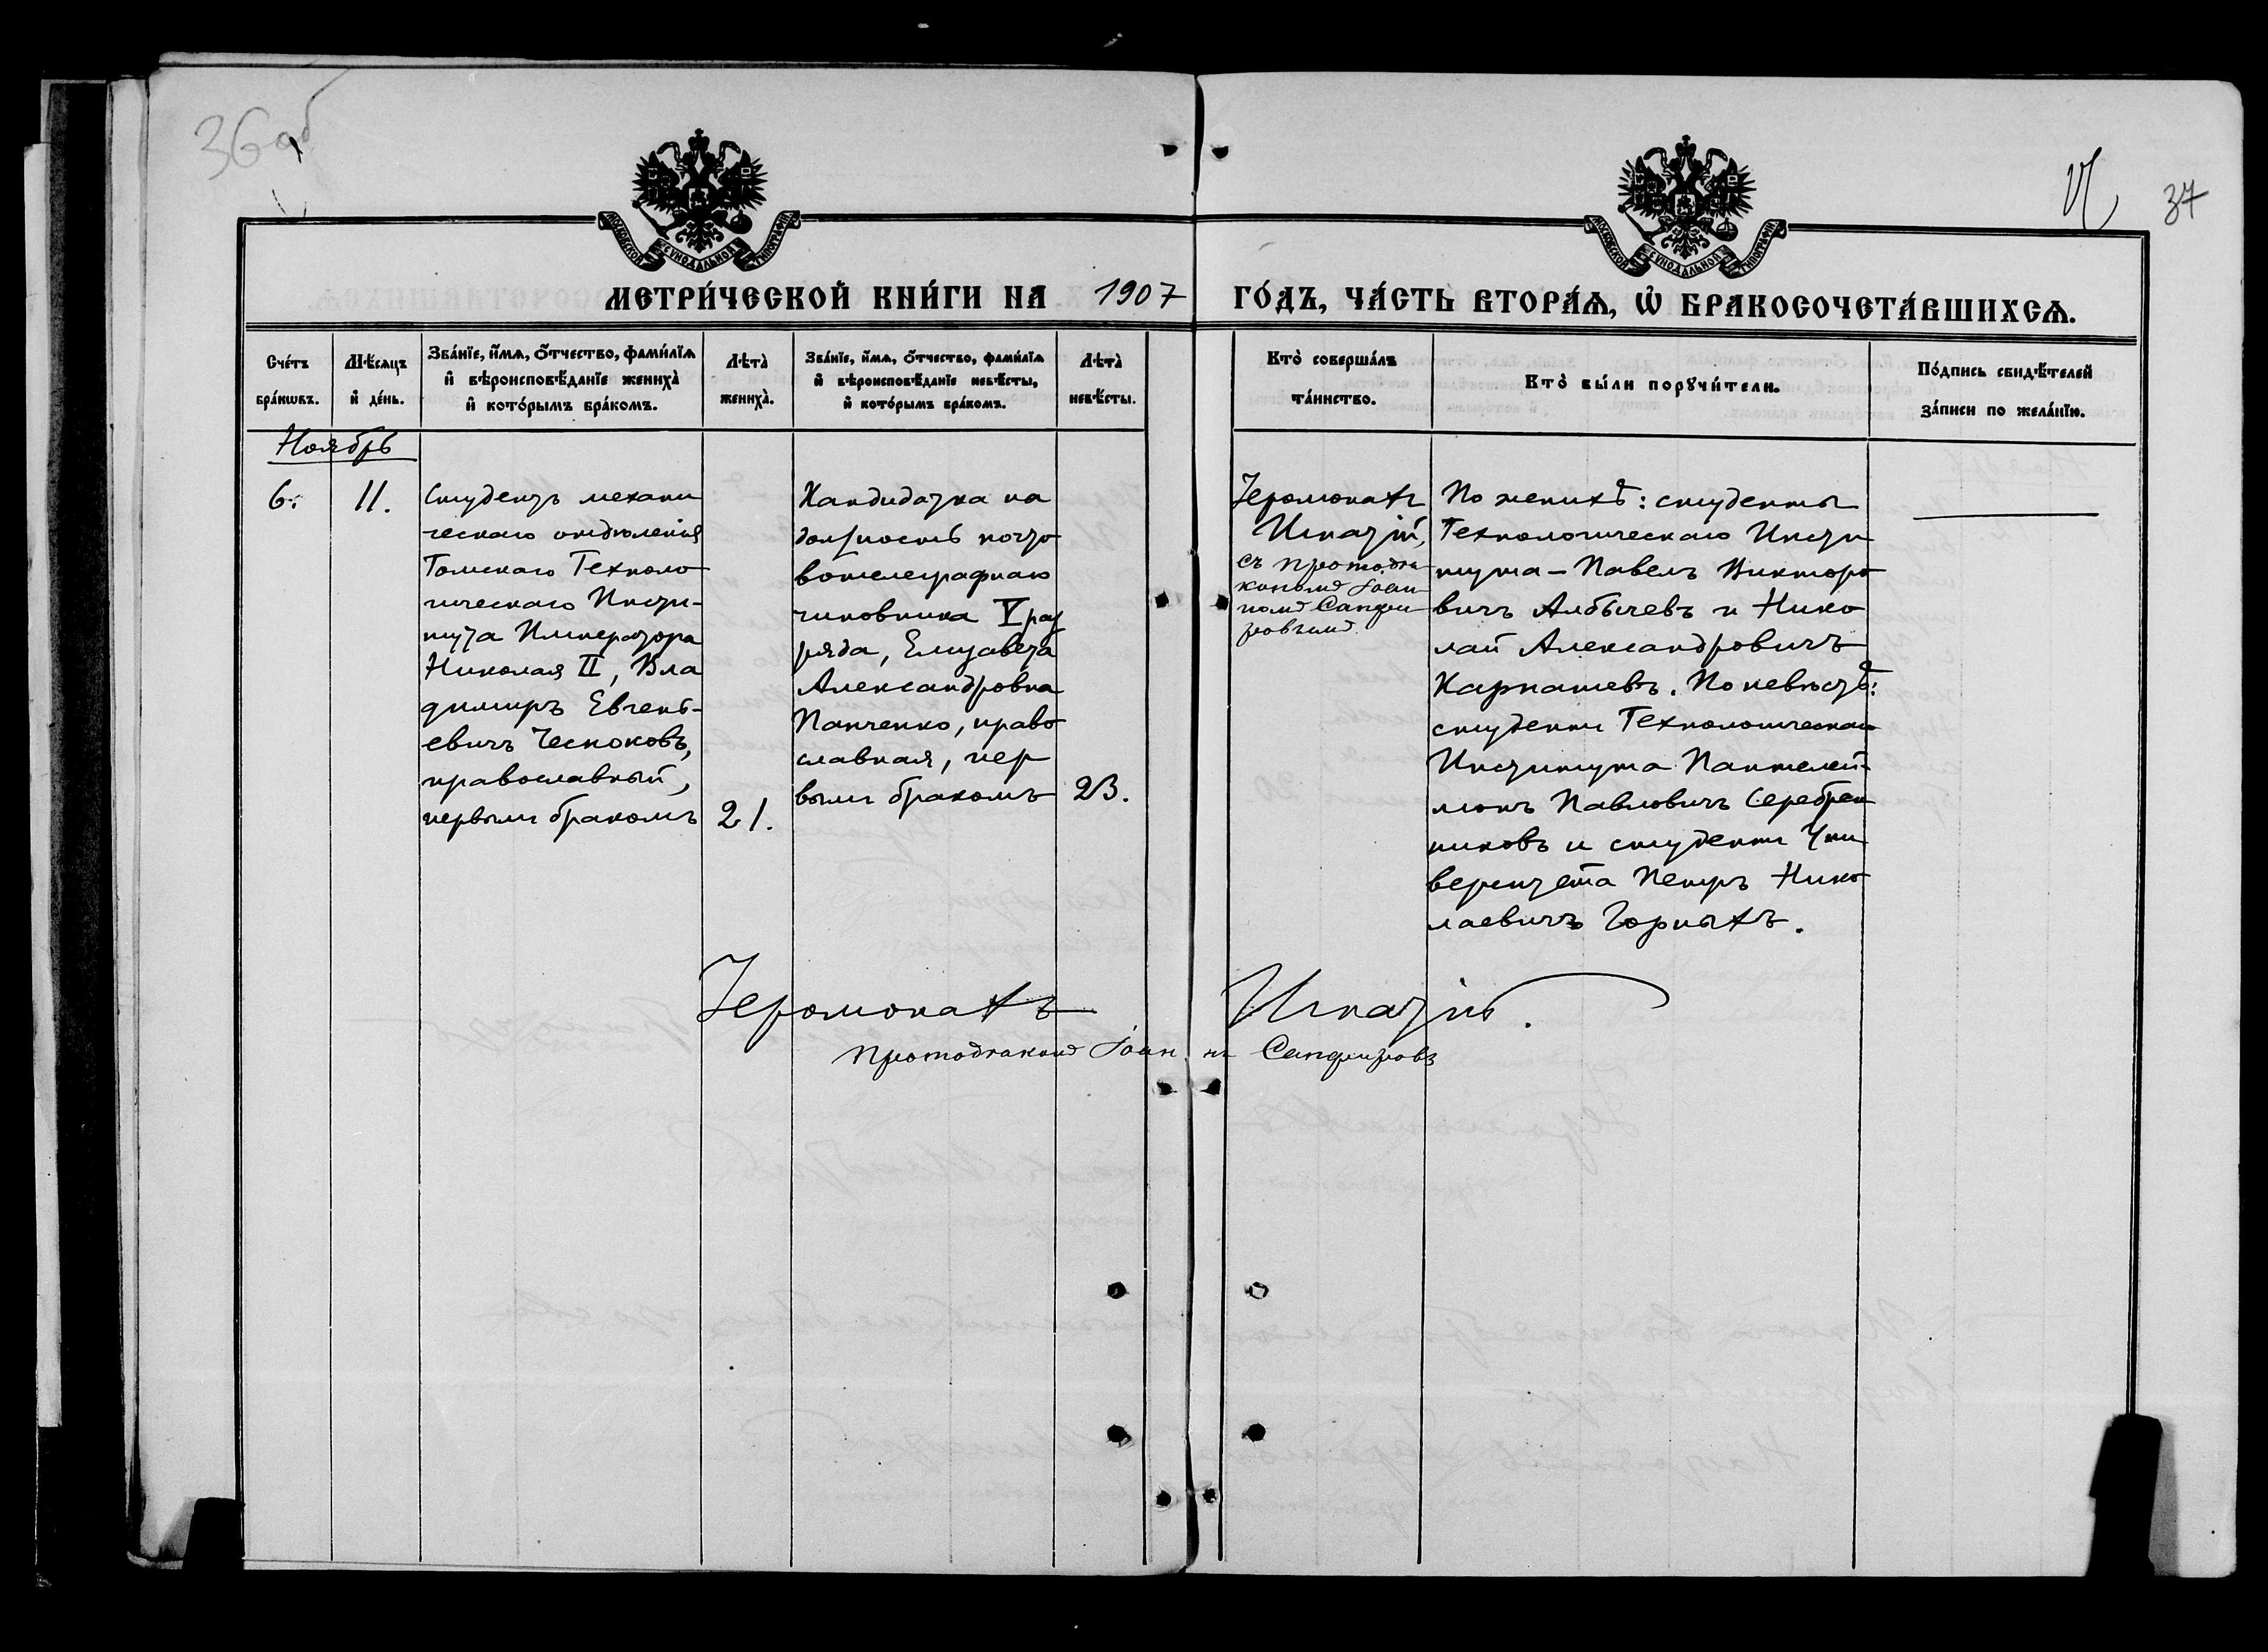 36об
37
МОСКОВСКОЙ СѴНОДАЛЬНОЙ ТИПОГРАФІИ
МОСКОВСКОЙ СѴНОДАЛЬНОЙ ТИПОГРАФІИ
МЕТРИ́ЧЕСКОЙ КНИ́ГИ НА 1907 ГО́ДЪ, ЧА́СТЬ ВТОРА́Ѧ, Ѡ҆ БРАКОСОЧЕТА́ВШИХСѦ.
Сче́тъ
бра́кѡвъ.
Мѣ́сѧцъ
и҆ де́нь.
Зва́нїе, и҆́мѧ, ѻ҆́тчество, фами́лїѧ
и҆ вѣроисповѣ́данїе жениха̀
и҆ кото́рымъ бра́комъ.
Лѣта̀
жениха̀.
Зва́нїе, и҆́мѧ, ѻ҆́тчество, фами́лїѧ
и҆ вѣроисповѣ́данїе невѣ́сты,
и҆ кото́рымъ бра́комъ.
Лѣта̀
невѣ́сты.
Кто̀ соверша́лъ
та́инство.
Кто̀ бы́ли порꙋчи́тели.
По́дпись свидѣ́телей
за́писи по жела́нїю.
Ноябрь
6.
11.
Студентъ механи
ческаго отдѣленія
Томскаго Техноло
гическаго Инсти-
тута Императора
Николая II, Вла
димиръ Евгень-
евичъ Чесноковъ,
православный,
первымъ бракомъ
21.
Кандидатка на
должность почто
вотелеграфнаго
чиновника V раз
ряда, Елизавета
Александровна
Панченко, право
славная, пер
вымъ бракомъ
23.
Іеромонахъ
Игнатій,
съ протодіа
кономъ Іоан
номъ Сапфи
ровымъ.
По женихѣ: студенты
Технологическаго Инсти
тута – Павелъ Викторо
вичъ Албычевъ и Нико
лай Александровичъ
Карпашевъ. По невѣстѣ:
студентъ Технологическаго
Института Пантелей-
монъ Павловичъ Серебрен
никовъ и студентъ Уни
верситета Петръ Нико
лаевичъ Горныхъ.
Іеромонахъ Игнатій.
Протодіаконъ Іоаннъ Сапфировъ